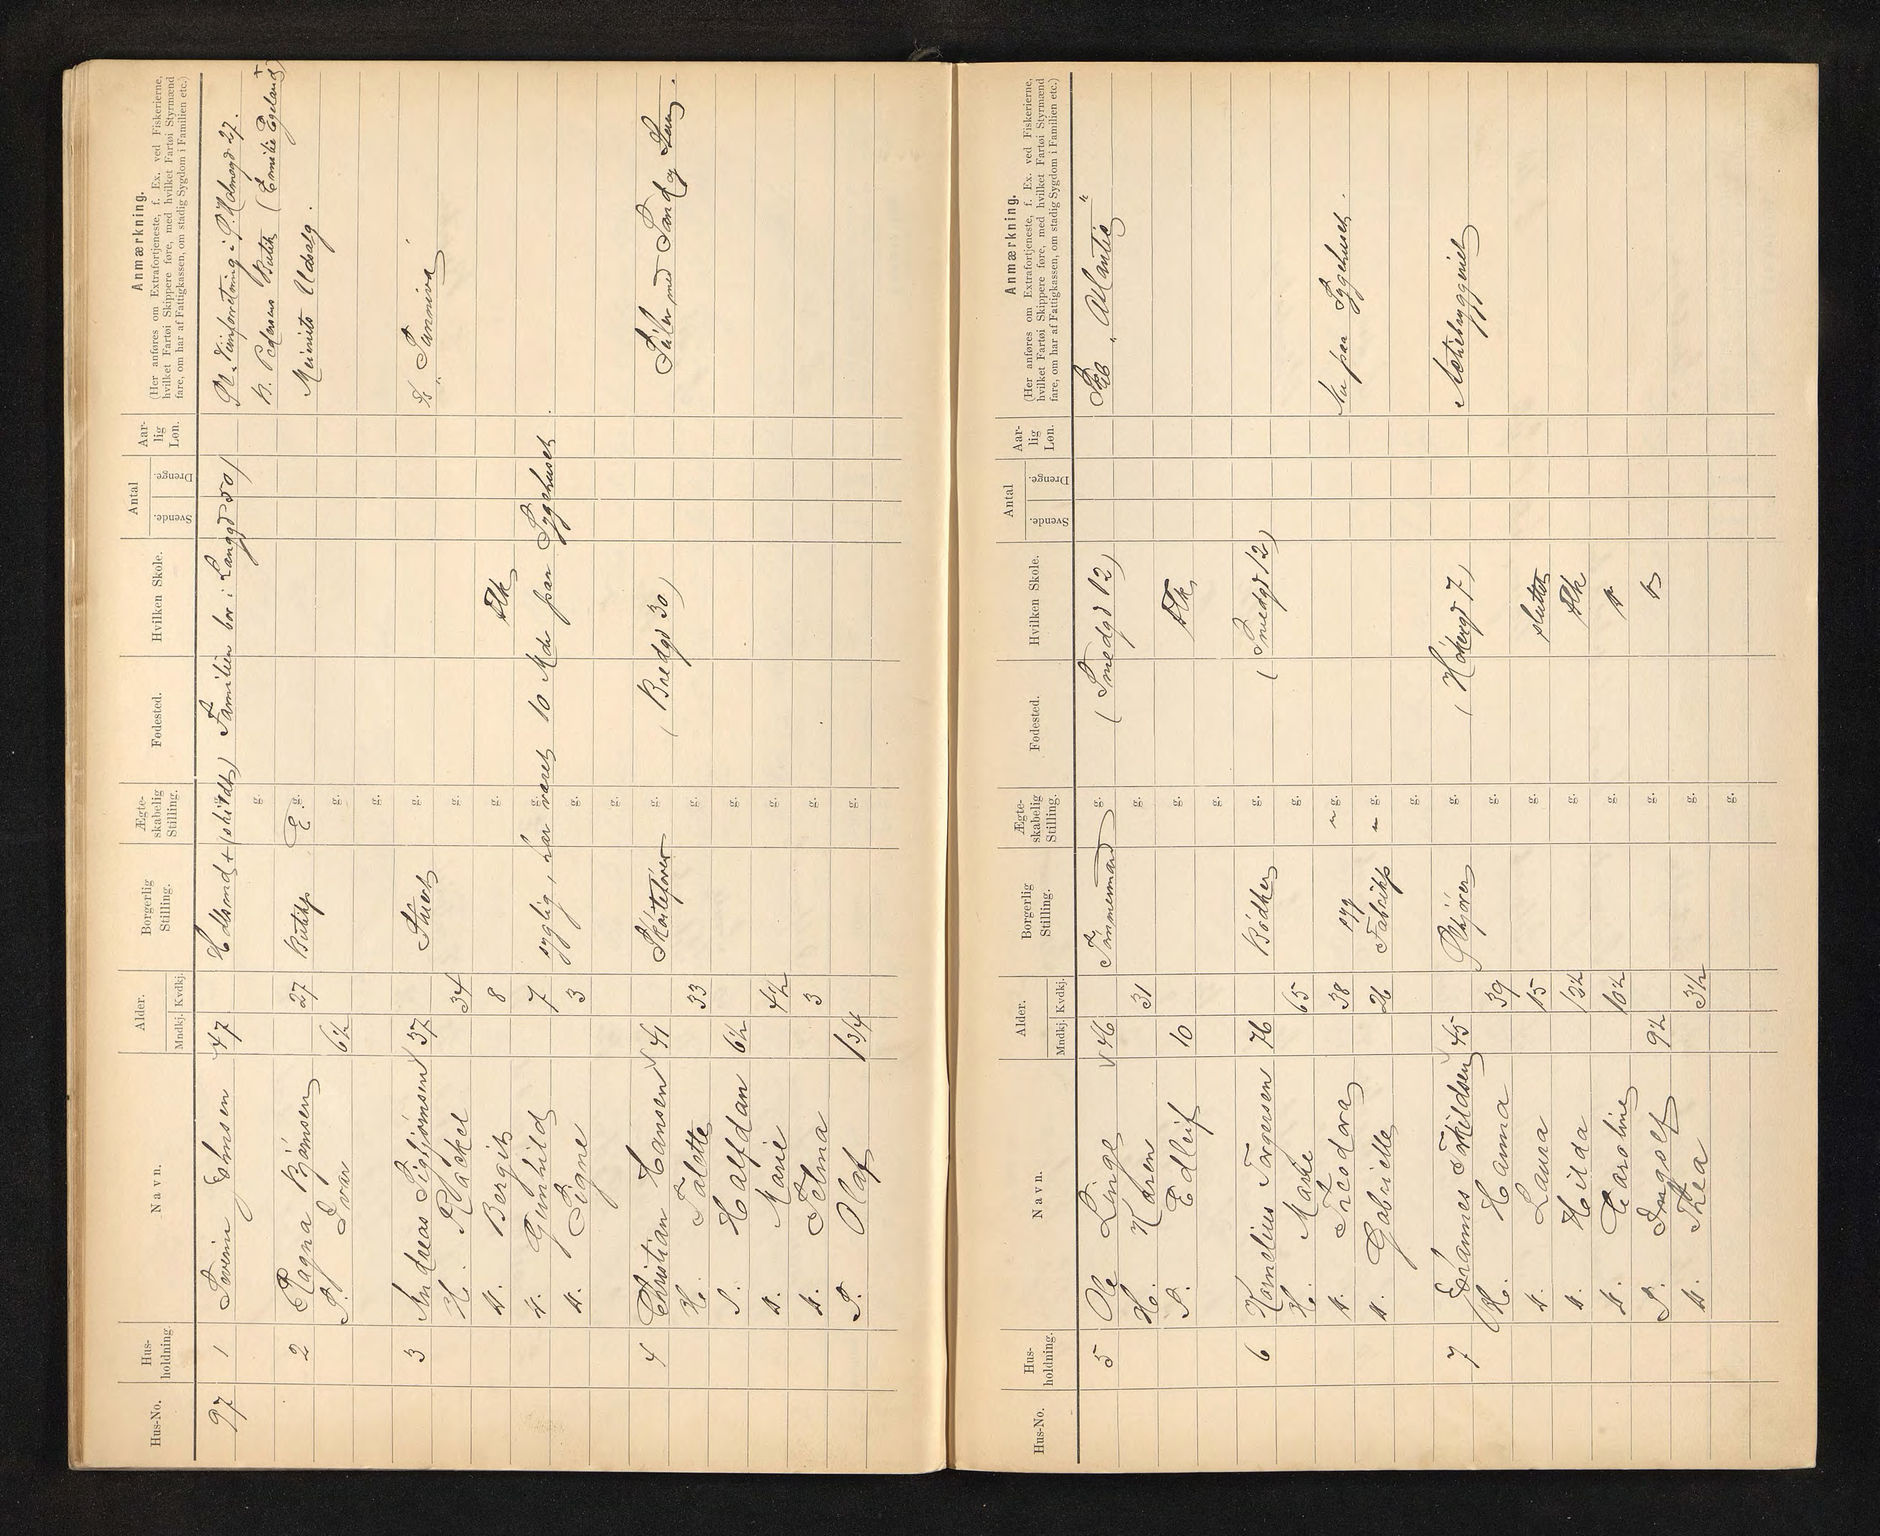 Hus-No. Hus-holdning. Navn. Alder. Mndkj. Kvdkj. Borgerlig Stilling. Ægte-skabelig Stilling. Fødested. Hvilken Skole. Antal Svende. Drenge. Aar-lig Løn. Anmærkning.
(Her anføres om Extrafortjeneste, f. Ex. ved Fiskerierne,
hvilket Fartøi Skippere føre, med hvilket Fartøi Styrmænd
fare, om har af Fattigkassen, om stadig Sygdom i Familien etc.)
97 1 Severin Johnsen 47 (skildt) Familien bor i Langgd 50)
27.
2 Ragna Bjørnsen 27 Butikk E. K. Pedersens Butik (Emilie Egeland)
S. Ivar 6½ Meieriets Udsalg.
3 Andreas Sigbjørnsen 37 Stuert S/S "Sunniva"
H. Rackel 34
D. Bergit 8 Flk
D. Gunhild 7 syglig, har været 10 Mdr paa Sygehuset
D. Signe 3
4 Christian Hansen 41 Skøitefører (Bredgd 30) Seiler med Sand og Sten.
H. Talette 33
S. Halfdan 6½
D. Marie 4½
D. Selma 3
S. Olaf 1 3/4
Hus-No. Hus-holdning. Navn. Alder. Mndkj. Kvdkj. Borgerlig Stilling. Ægte-skabelig Stilling. Fødested. Hvilken Skole. Antal Svende. Drenge. Aar-lig Løn. Anmærkning.
(Her anføres om Extrafortjeneste, f. Ex. ved Fiskerierne,
hvilket Fartøi Skippere føre, med hvilket Fartøi Styrmænd
fare, om har af Fattigkassen, om stadig Sygdom i Familien etc.)
5 Ole Linge 46 Tømmermand g. (Smedgd 12) Skb "Atlantic"
H. Karen 31
S. Edleif 10 Flk
6 Kornelius Torgersen 76 Bødker (Smedgd 12)
H. Marte 65
D. Theodora 38 syg " Nu paa Sygehuset.
D. Gabrielle 26 Fabrikk "
7 Johannes Torkildsen 45 (Høbergd 7) Actiebryggeriet
H. Hanna 39
D. Laura 15 sluttet
D. Hilda 13½ Flk
D. Caroline 10½ "
S. Ingolf 9½ "
D. Thea 3½